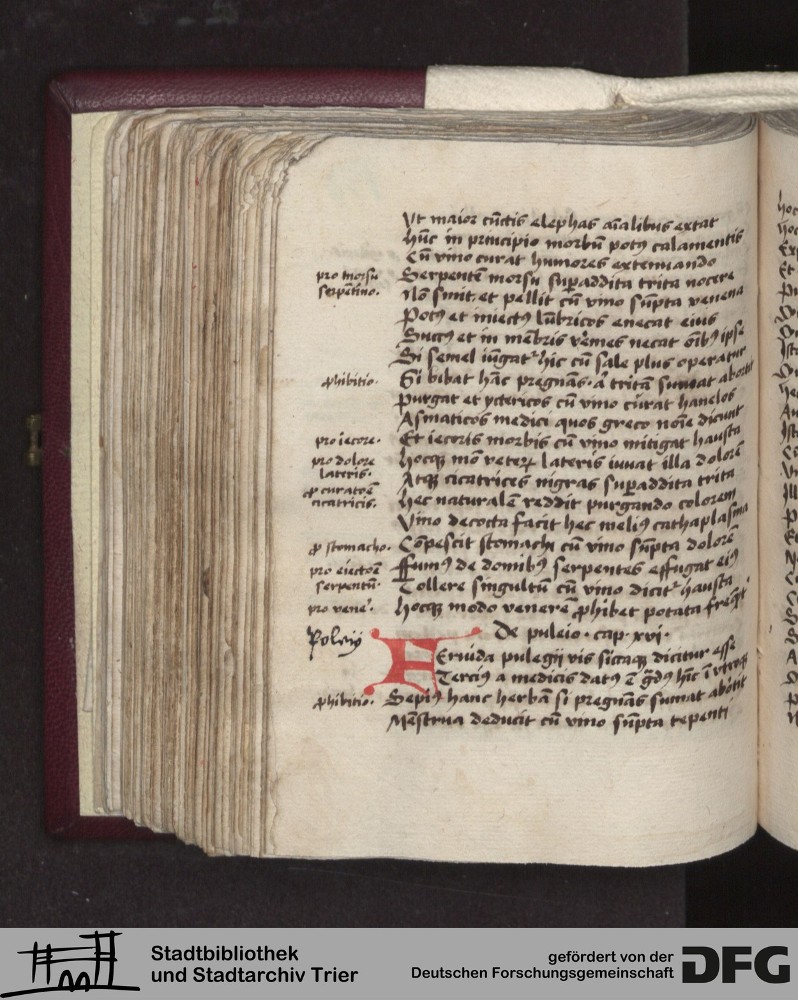 Vt maior cūctis elephas aīalibus extat
hūc in principio morbū potꝰ calamentis
Cū vino curat humores extenuando
pro morsu
serpētino.
Serpentē morsu suꝑaddita trita nocere
Nō sinit et pellit cū vino sūpta venena
Potꝰ et iniectꝰ lūbricos enecat eius
Succꝰ et in mēbris v̄mes necat oībꝰ ipse
Si semel iūgatᷣ hic cū sale plus operatur
ꝓhibitio.
Si bibat hāc pregnās a tritā sumat abortit
purgat et yctericos cū vino curat hanelos
Asmaticos medici quos greco noīe dicunt
pro iecore.
Et iecoris morbis cū vino mitigat hausta
pro dolore
lateris.
hocqꝫ mō veterꝝ lateris iuuat illa dolorē
ꝓ curatōe
cicatricis.
Atqꝫ cicatrices nigras suꝑaddita trita
hec naturalē reddit purgando colorem
Vino decocta facit hec meliꝰ cathaplasma
ꝓ stomacho.
Cōpescit stomachi cū vino sūpta dolorē
pro eiectōe
serpentū.
ffumꝰ de domibꝰ serpentes effugat eiꝰ
Tollere singultū cū vino dicitᷣ hausta
pro vene.
hocqꝫ modo venerē ꝓhibet potata freqͫt
De puleio. cap. xvi.
Poleij
Feruida pulegij vis siccaqꝫ dicitur esse
Terciꝰ a medicis datꝰ ē gdꝰ hīc ī vtroqꝫ
ꝓhibitio.
Sepiꝰ hanc herbā si pregnās sumat abortit
Mēstrua deducit cū vino sūpta tepenti
Stadtbibliothek
und Stadtarchiv Trier
gefördert von der
Deutschen Forschungsgemeinschaft
DFG